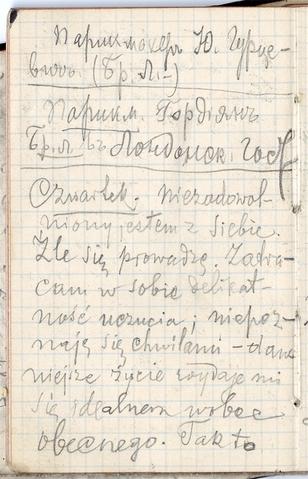 Парикмахеръ Ю. Гурце-
вичъ. (Бр. Л.-)
Парикм. Гордіянъ
Бр. Л въ Лондонск. Гост
Czwartek. Niezadowol-
niony jestem z siebie.
Źle się prowadzę. Zatra-
cam w sobie delikat-
ność uczucia; niepoz-
naję się chwilami – daw
niejsze życie wydaje mi
się idealnem wobec
obecnego. Tak to